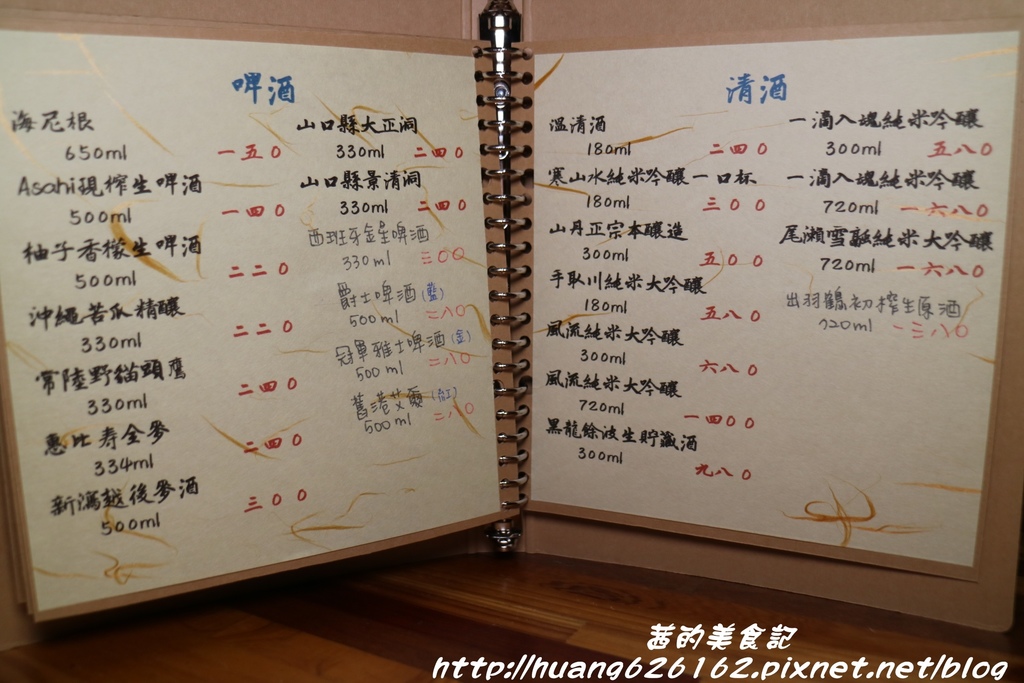 啤酒
海尼根
650ml 一五０
Asahi現榨生啤酒
500ml 一四０
柚子香檬生啤酒
500ml 二二０
沖繩苦瓜精釀
330ml 二二０
常陸野貓頭鷹
330ml 二四０
惠比寿全麥
334ml 二四０
新瀉越後麥酒
500ml 三００
山口縣大正洞
330ml 二四０
山口縣景清洞
330ml 二四０
西班牙金星啤酒
330ml 三００
爵士啤酒(藍)
500ml 二八０
冠軍雅士啤酒(金)
500ml 二八０
舊港艾爾(紅)
500ml 二八０
清酒
溫清酒
180ml 二四０
寒山水純米吟釀一口杯
180ml 三００
山丹正宗本釀造
300ml 五００
手取川純米大吟釀
180ml 五八０
風流純米大吟釀
300ml 六八０
風流純米大吟釀
720ml 一四００
黑龍餘波生貯藏酒
300ml 九八０
一滴入魂純米吟釀
300ml 五八０
一滴入魂純米吟釀
720ml 一六八０
尾瀨雪融純米大吟釀
720ml 一六八０
出羽鶴初榨生原酒
720ml 一三八０
茜的美食記
http://huang626162.pixnet.net/blog